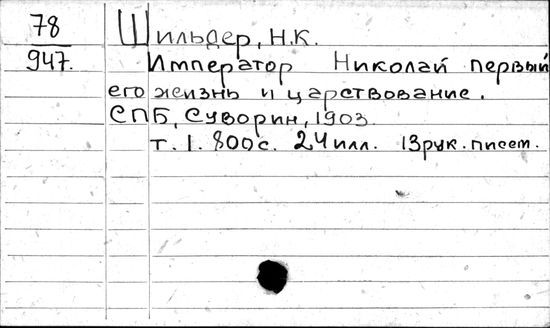 78 Шильдер, Н.К.
947. Император Николай первый
его жизнь и царствование.
СПБ, Суворин, 1903
т. 1. 800 с. 24 илл. 13 рук. писем.